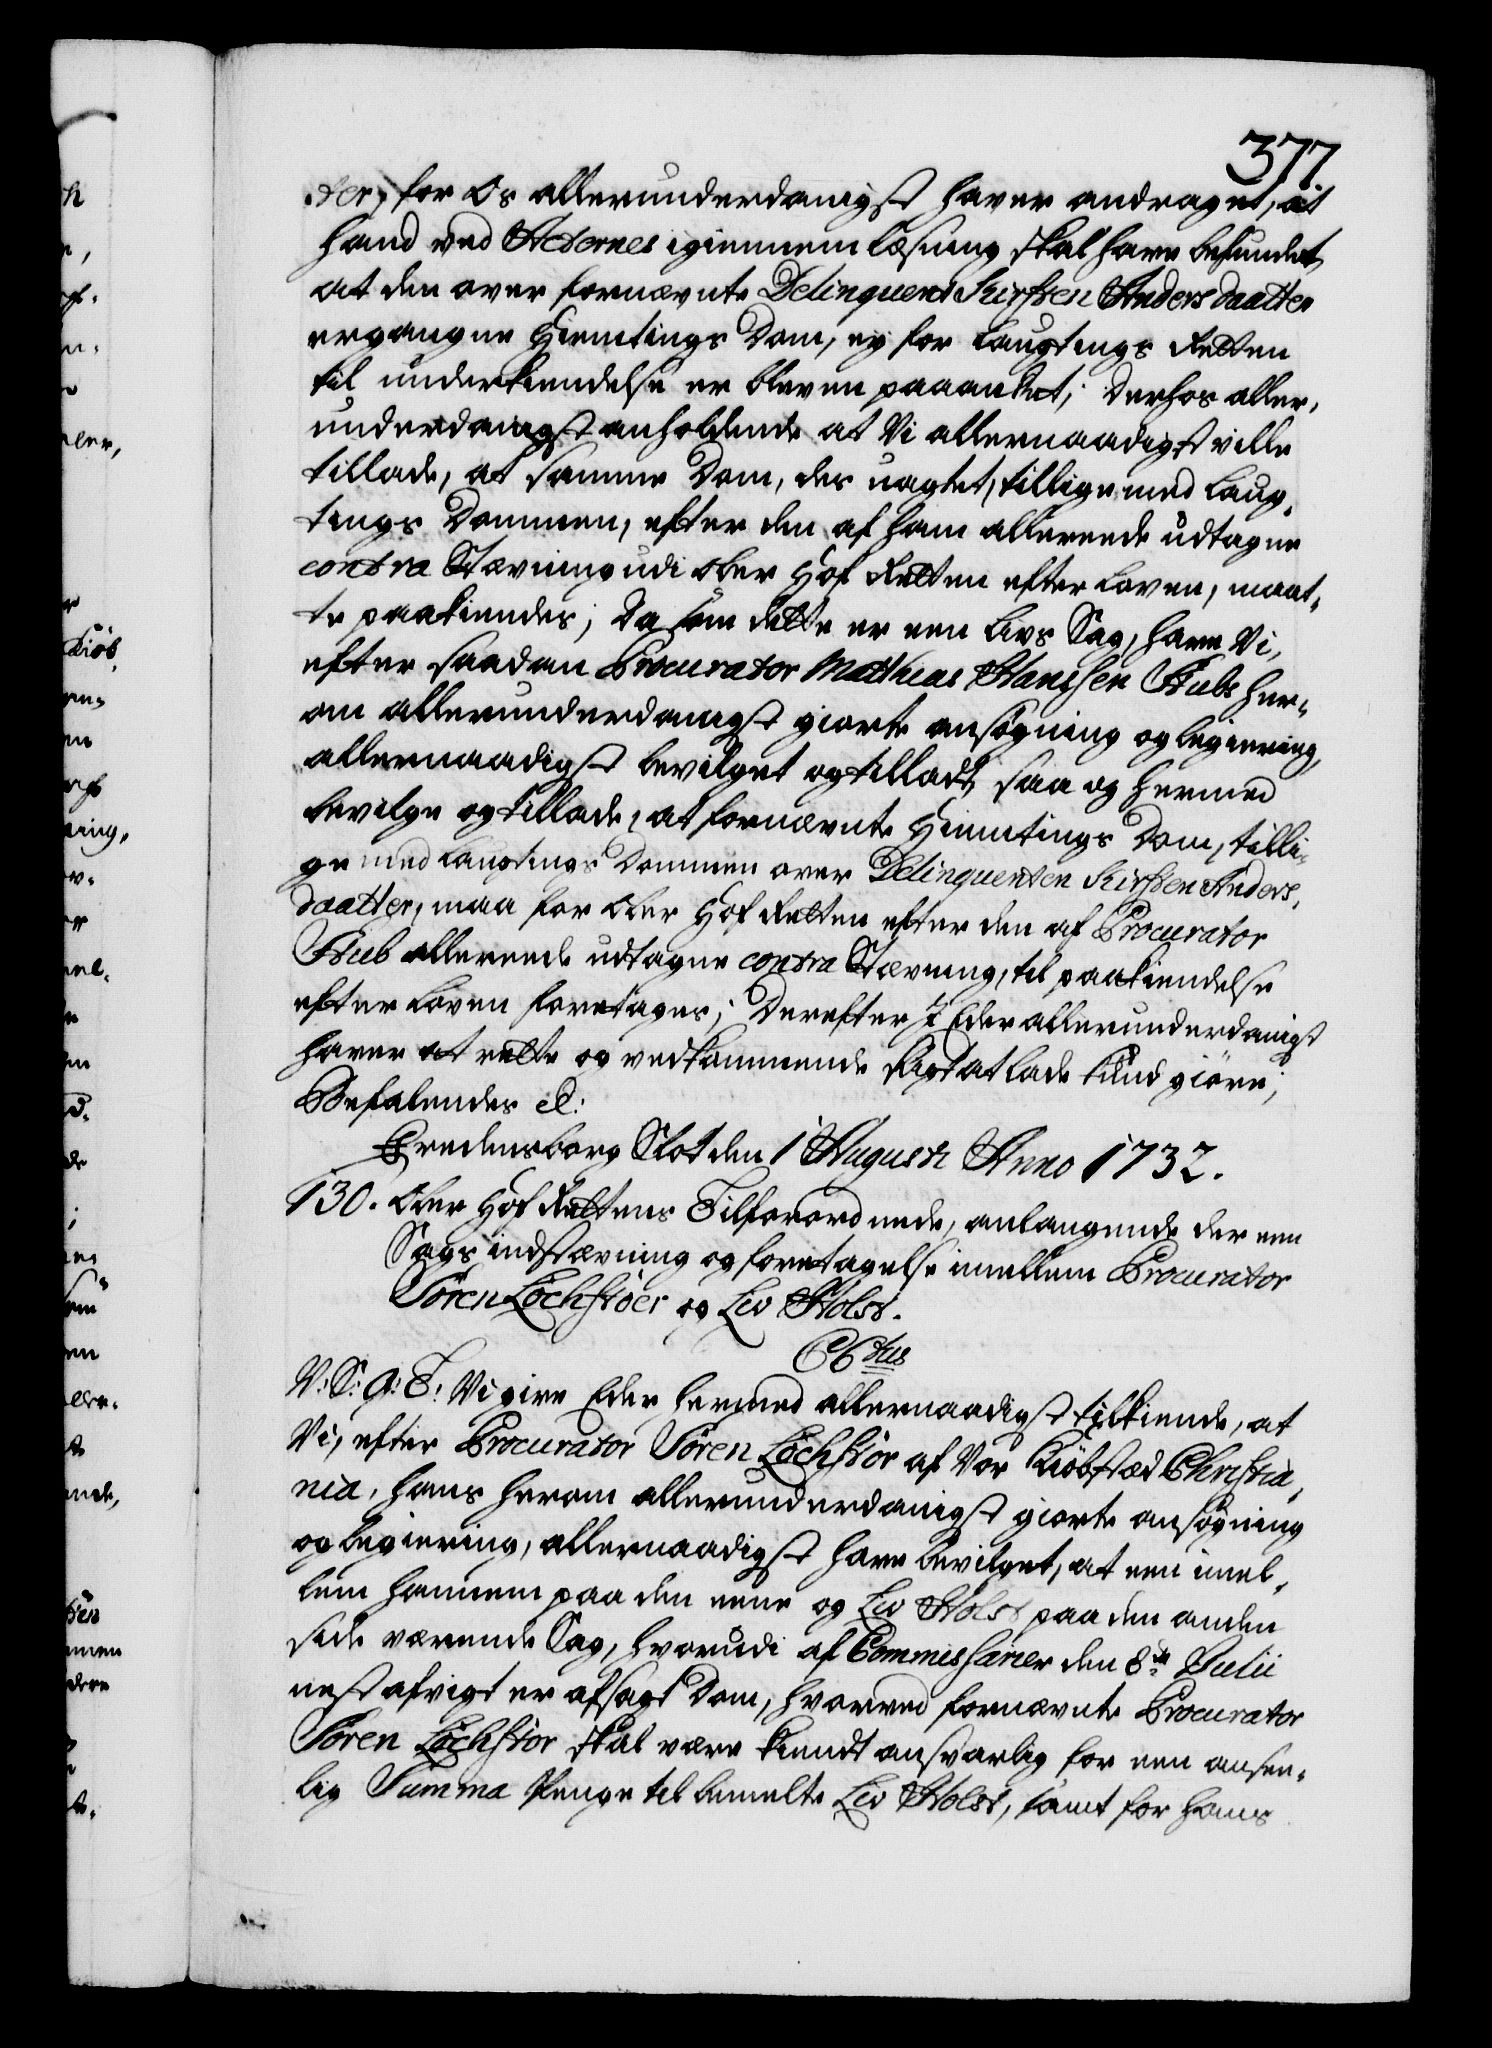 377.
ter, for Os allerunderdanigst haver andraget, at
hand ved Acternes igiennemlæsning skal have befundet,
at den over fornævnte Delinquent Kirsten Anders daatter
ergangne Hiemtings Dom, ey for Laugtings Retten
til underkiendelse er bleven paaanket; Derhos aller,
underdanigst anholdende at Vi allernaadigst ville
tillade, at samme Dom, des uagtet, tillige med Laug,
tings Dommen, efter den af ham allereede udtagne
contra Stævning udi Ober Hof Retten efter Loven, maat,
te paakiendes; Da som dette er een Livs Sag, have Vi,
efter saadan Procurator Matthias Hanssen Stubs her,
om allerunderdanigst giorte ansøgning og begiering,
allernaadigst bevilget og tilladt, saa og hermed
bevilge og tillade, at fornævnte Hiemtings Dom, tilli,
ge med Laugtings Dommen over Delinquenten Kirsten Anders,
daatter, maa for Ober Hof Retten efter den af Procurator
Stub allereede udtagne contra Stævning, til paakiendelse
efter Loven foretages; Derefter I Eder allerunderdanigst
haver at rette og vedkommende sligt at lade kund giøre;
Befalendes etc:
Fredensborg Slot den 1 Augusti Anno 1732.
130. Ober Hof Rettens Tilforordnede, anlangende der een
Sags indstævning og foretagelse imellem Procurator
Sören Löchstöer og Lev Holst.
C6tus
V: S: G: T: Vi give Eder hermed allernaadigst tilkiende, at
Vi, efter Procurator Sören Löchstör af Vor Kiöbstæd Christia,
nia, hans herom allerunderdanigst giorte ansøgning
og begiering, allernaadigst have bevilget, at een imel,
lem hannem paa den eene og Lev Holst paa den anden
side værende Sag, hvorudi af Commissarier den 8de Julii
nest afvigt er afsagt Dom, hvorved fornævnte Procurator
Sören Löchstör skal være kiendt ansvarlig for een ansee,
lig Summa Penge til bemelte Lev Holst, samt for hans